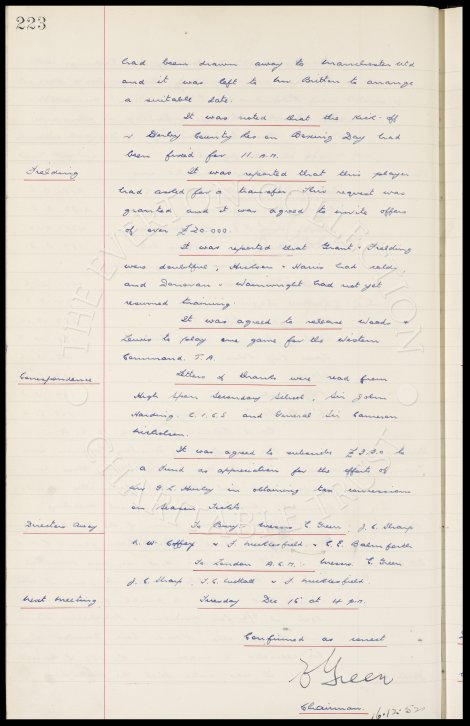 223
had been drawn away to Manchester Utd
and it was left to Mr Britton to arrange
a suitable date.
It was noted that the kick-off
v Derby County Res on Boxing Day had
been fixed for 11 A.M.
Fielding It was reported that this player
had asked for a transfer. This request was
granted and it was agreed to invite offers
of over £20.000.
It was reported that Grant & Fielding
were doubtful, & Harris had colds,
and Donovan & Wainwright had not yet
resumed training.
It was agreed to release Woods &
Lewis to play one game for the Western
Command T.A.
Correspondence Letters of thanks were read from
High Secondary School, Sir John
Harding C.I.G.S and General Sir Cameron
Nicholson.
It was agreed to subscribe £3.3.0 to
a Fund as appreciation for the efforts of
in obtaining tax concessions
on Season Tickets.
Directors Away To Bury: Messrs E Green, J.C. Sharp
R. W. & F. Micklesfield & C.E. Balmforth
To London A.G.M: Messrs. E. Green
J.C. Sharp, & F. Micklesfield.
Next Meeting Tuesday Dec 16 at 4 p.m.
Confirmed as correct
E Green
Chairman. 16.12.52
THE EVERTON COLLECTION
CHARITABLE TRUST